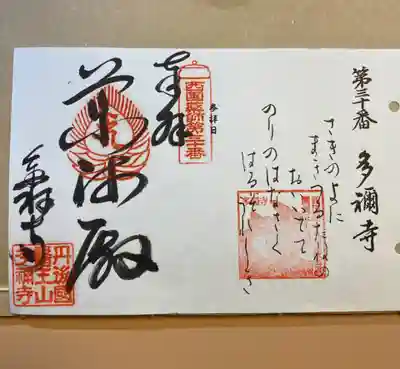 第三十番 多禰寺
さきのよに
まきつるたねの
おいでて
のりのはなさく
はるぞ
西国薬師第三十番
参拝日
奉拝
薬師殿
多祢寺
丹後國
醫王山
多禰寺